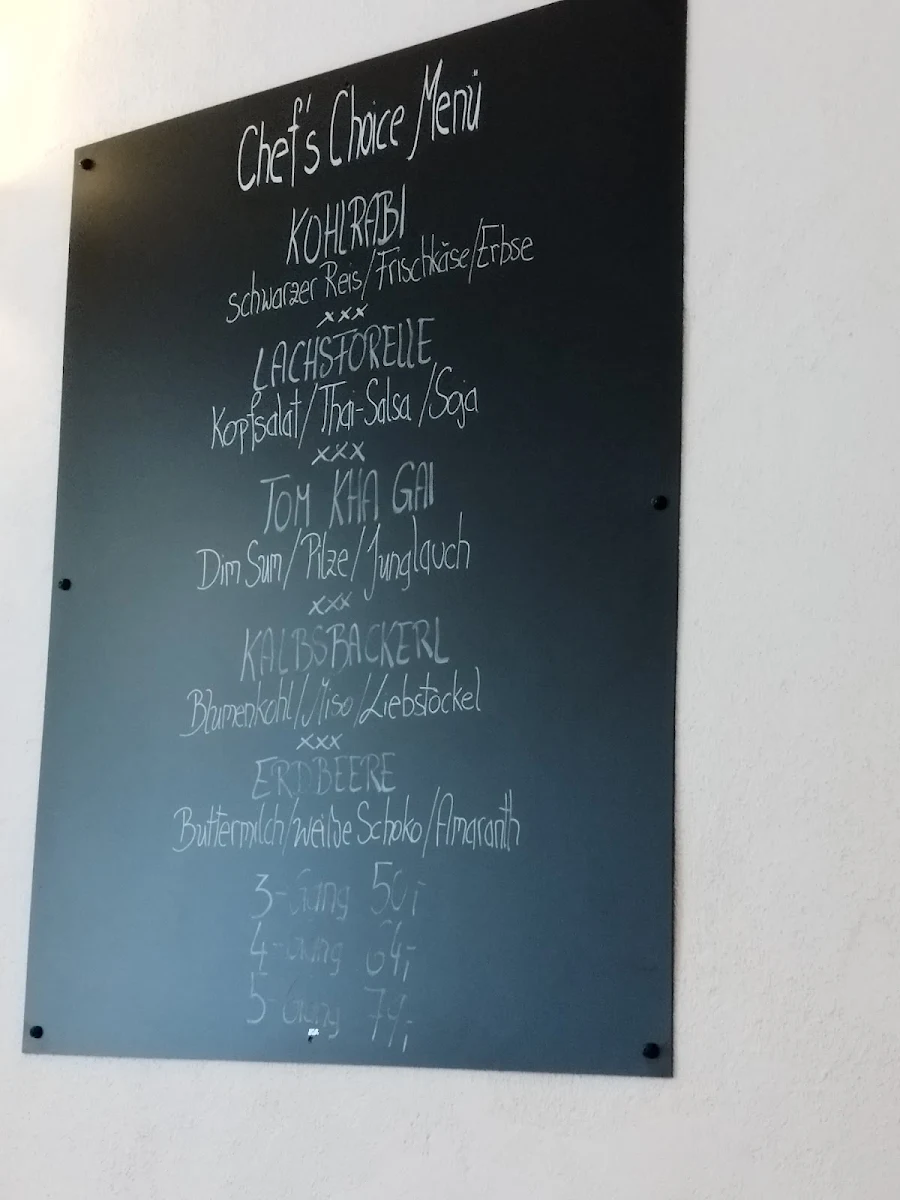 Chef's Choice Menü
KOHLRABI
schwarzer Reis/Frischkäse/Erbse
xxx
LACHSFORELLE
Kopfsalat/Thai-Salsa/Soja
xxx
TOM KHA GAI
Dim Sum/Pilze/Junglauch
xxx
KALBSBACKERL
Blumenkohl/Miso/Liebstöckel
xxx
ERDBEERE
Buttermilch/weiße Schoko/Amaranth
3-Gang
4-Gang 64,-
5-Gang 79,-